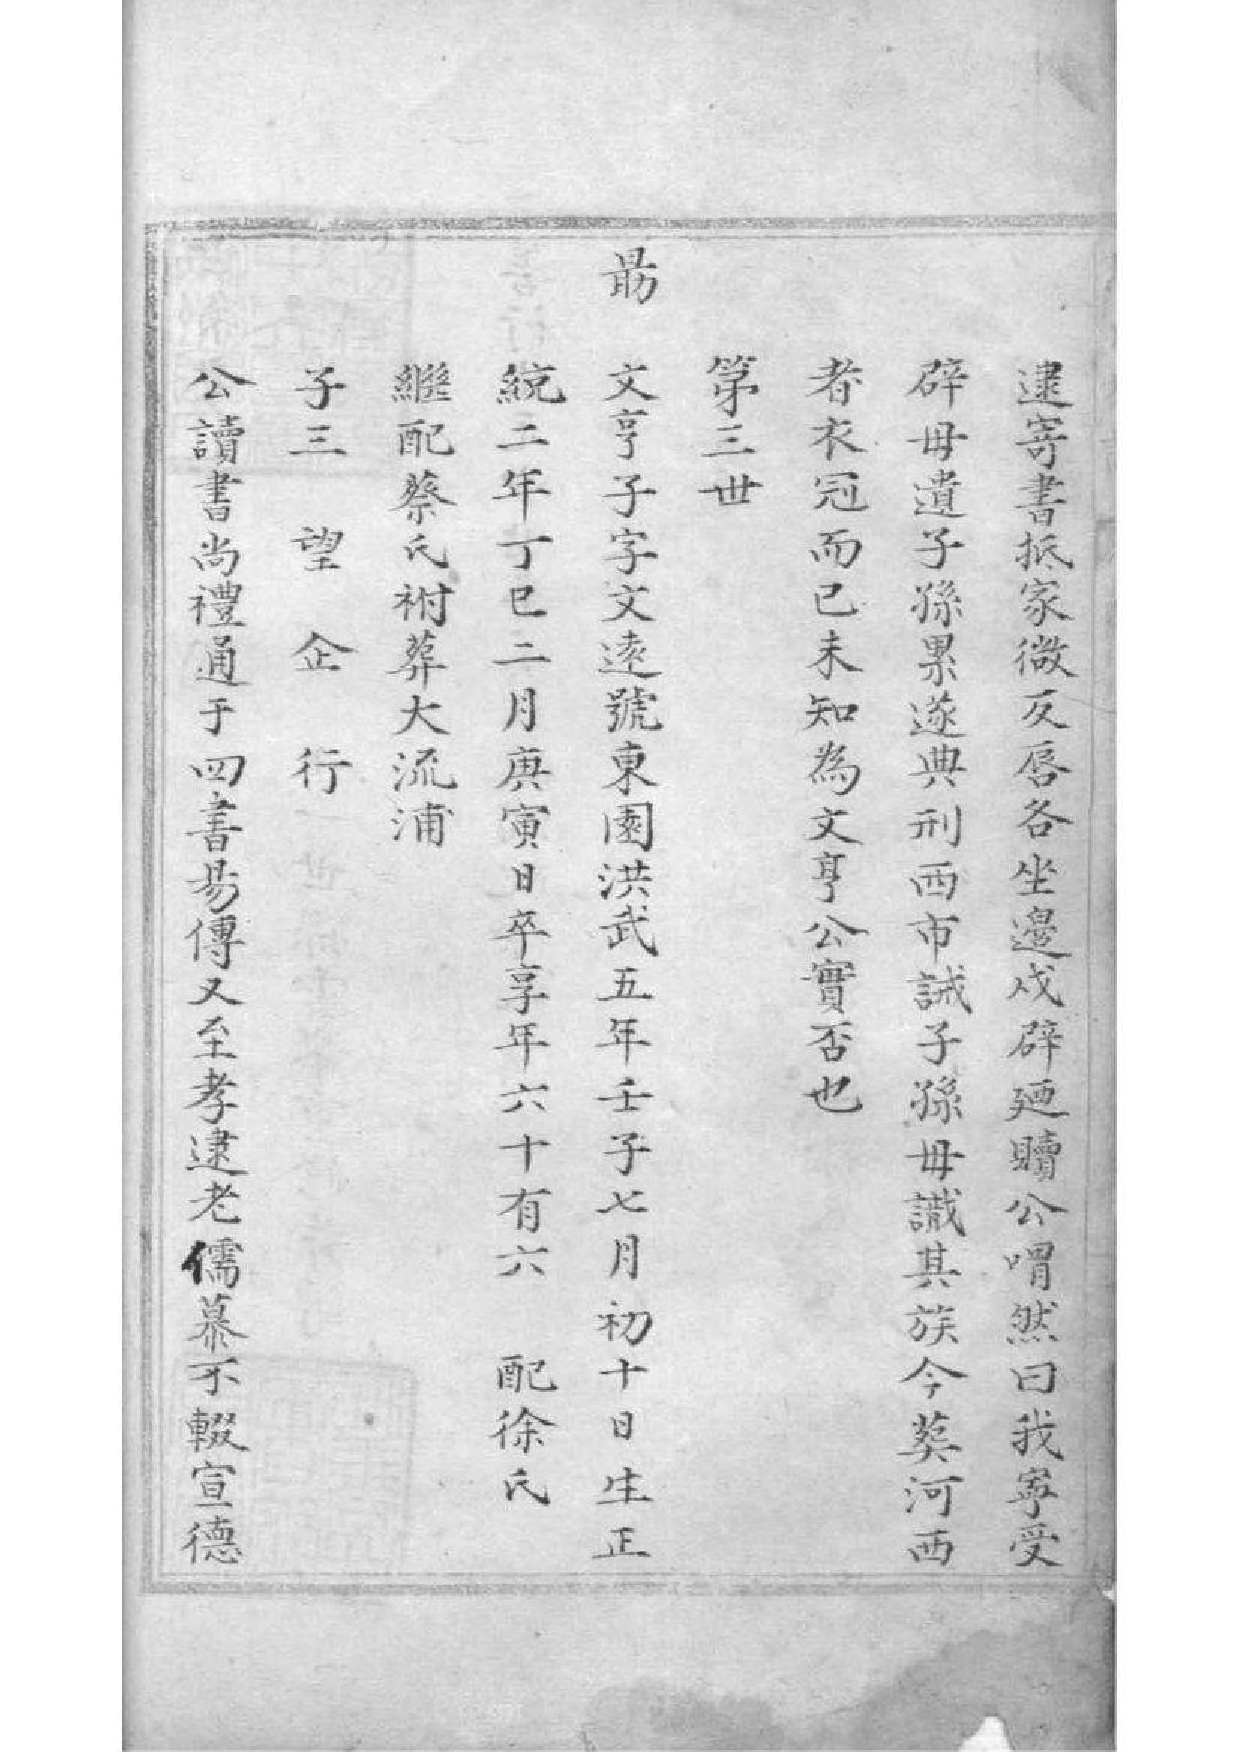 逮寄書抵家微反唇各坐邊戍辟廼贖公喟然曰我寧受
辟毋遺子孫累遂典刑西市誡子孫毋譏其族今葬河西
者衣冠而已未知為文亨公實否也
第三世
勗 文亨子字文逺號東園洪武五年壬子七月初十日生正
統二年丁巳二月庚寅日卒享年六十有六 配徐氏
繼配蔡氏祔葬大流浦
子三 望 企 行
公讀書尚禮通于四書易傳又至孝逮老儒慕不輟宣德